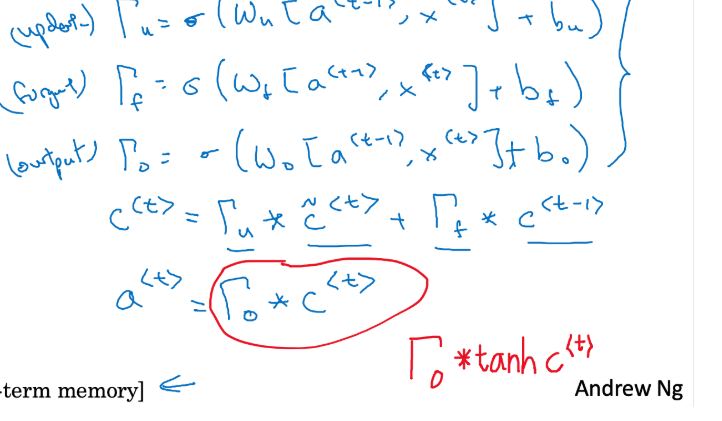 (update) Γu = σ(Wu[a<t-1>, x<t>] + bu)
(forget) Γf = σ(Wf[a<t-1>, x<t>] + bf)
(output) Γo = σ(Wo[a<t-1>, x<t>] + bo)
c<t> = Γu * c̃<t> + Γf * c<t-1>
a<t> = Γo * c<t>
Γo * tanh c<t>
-term memory] ←
Andrew Ng